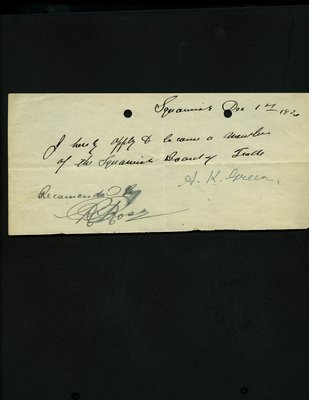 Squamish Dec 17
I herby apply to become a member
of the Squamish Board of Trade
A. K. Green.
Recomended By
Ross